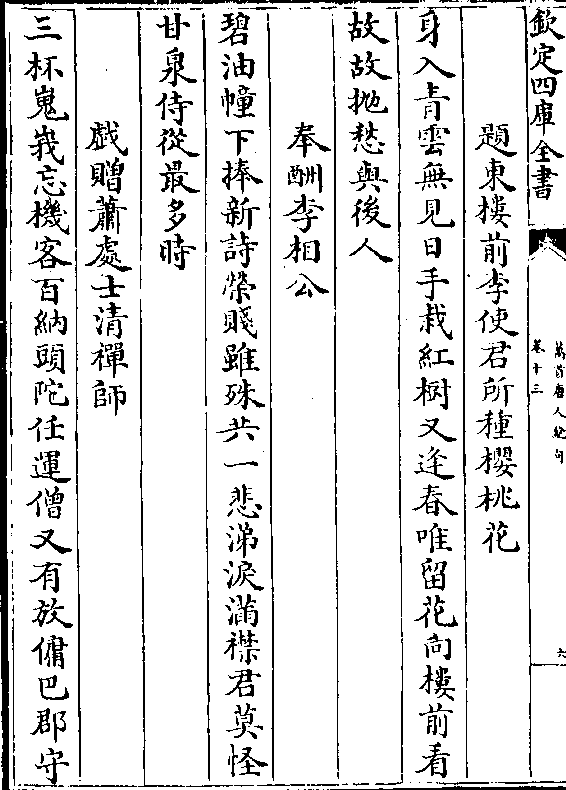 欽定四庫全書
萬首唐人絶句
卷十三
六
題東樓前李使君所種櫻桃花
身入青雲無見日手栽紅樹又逢春唯留花向樓前看
故故抛愁與後人
奉酬李相公
碧油幢下捧新詩榮賤雖殊共一悲涕淚滿襟君莫怪
甘泉侍從最多時
戲贈蕭處士清禪師
三杯嵬峩忘機客百納頭陀任運僧又有放傭巴郡守